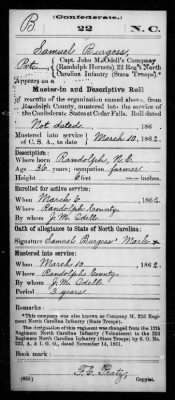 (Confederate.)
B 22 N. C.
Samuel Burgess
Capt. John M. Odell's Company
(Randolph Hornets), 22 Reg't North
Carolina Infantry (State Troops).*
Appears on a
Muster-in and Descriptive Roll
of recruits of the organization named above, from
Randolph County, mustered into the service of
the Confederate States at Cedar Falls. Roll dated
Not dated, 186
Mustered into service
of C. S. A., to date March 10, 1862.
Description:
Where born Randolph, N.C.
Age 36 years; occupation farmer
Height 6 feet inches.
Enrolled for active service:
When March 6, 1862.
Where Randolph County.
By whom J. M. Odell.
Oath of allegiance to State of North Carolina:
Signature Samuel Burgess Mark x
Mustered into service:
When March 10, 1862.
Where Randolph County
By whom J. M. Odell
Period 3 years.
Remarks:
*This company was also known as Company M, 22d Regiment
North Carolina Infantry (State Troops).
The designation of this regiment was changed from the 12th
Regiment North Carolina Infantry (Volunteers) to the 22d
Regiment North Carolina Infantry (State Troops) by S. O. No.
222, A. & I. G. O., dated November 14, 1861.
Book mark:
(655) Copyist.